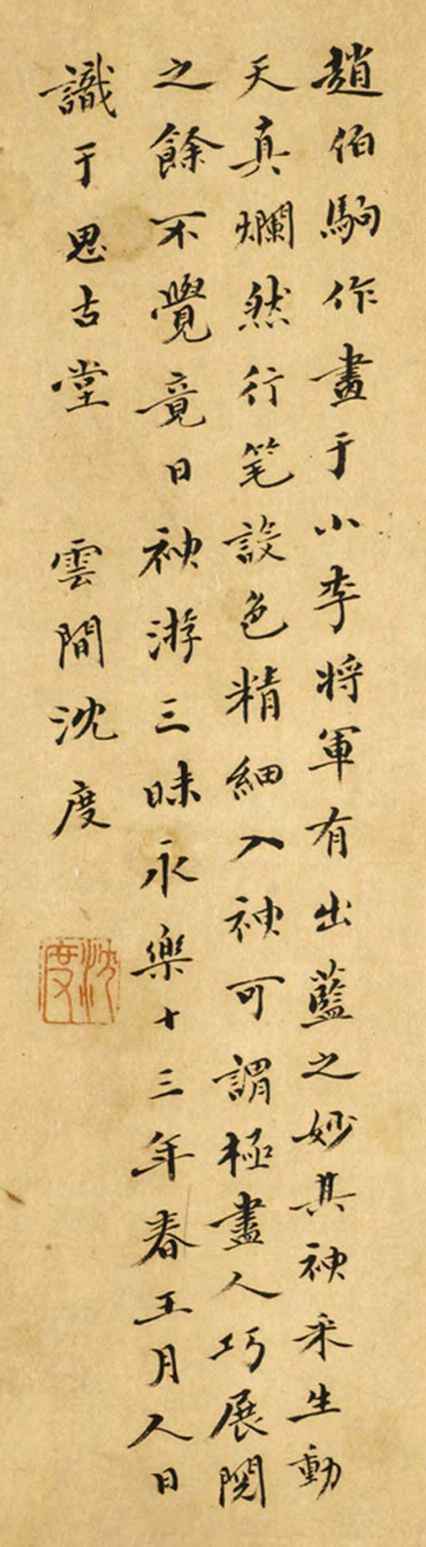 趙伯駒作畫于小李將軍有出藍之妙其神采生動
天真爛然行笔設色精細入神可謂極盡人巧展閱
之餘不覺竟日神游三昧永樂十三年春王月人日
識于思古堂 雲間沈度
沈度